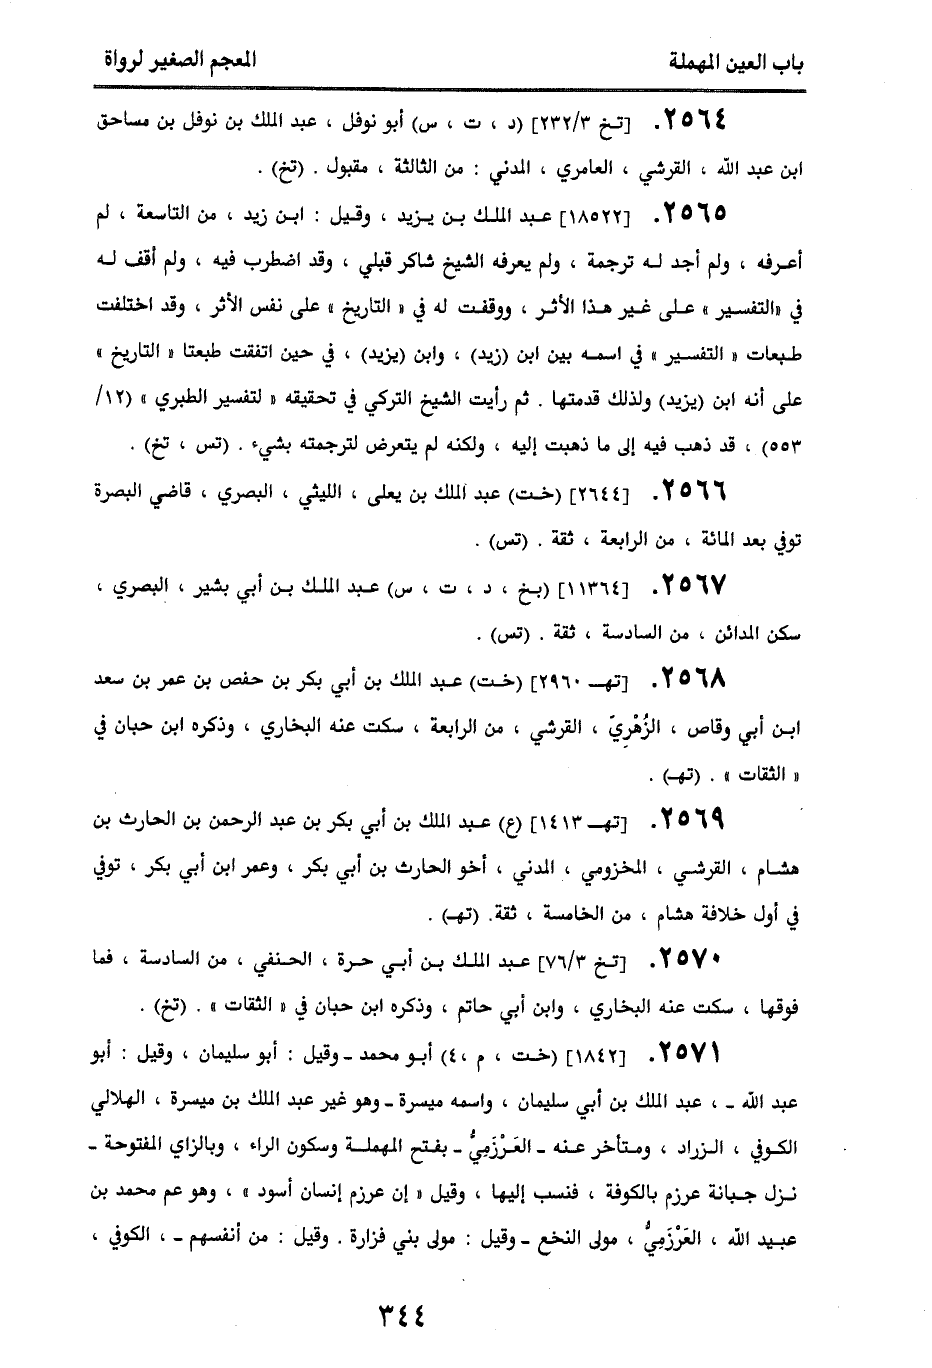 باب العين المهملة
المعجم الصغير لرواة
٢٥٦٤. [تخ ٢٣٢/٣] (د ، ت ، س) أبو نوفل ، عبد الملك بن نوفل بن مساحق
ابن عبد الله ، القرشي ، العامري ، المدني : من الثالثة ، مقبول . (تخ) .
٢٥٦٥. [١٨٥٢٢] عبد الملك بن يزيد ، وقيل : ابن زيد ، من التاسعة ، لم
أعرفه ، ولم أجد له ترجمة ، ولم يعرفه الشيخ شاكر قبلي ، وقد اضطرب فيه ، ولم أقف له
في «التفسير» على غير هذا الأثر ، ووقفت له في « التاريخ » على نفس الأثر ، وقد اختلفت
طبعات « التفسير » في اسمه بين ابن (زيد) ، وابن (يزيد) ، في حين اتفقت طبعتا « التاريخ »
على أنه ابن (يزيد) ولذلك قدمتها . ثم رأيت الشيخ التركي في تحقيقه « لتفسير الطبري » (١٢/
٥٥٣) ، قد ذهب فيه إلى ما ذهبت إليه ، ولكنه لم يتعرض لترجمته بشيء . (تس ، تخ) .
٢٥٦٦. [٢٦٤٤] (خت) عبد الملك بن يعلى ، الليثي ، البصري ، قاضي البصرة
توفي بعد المائة ، من الرابعة ، ثقة . (تس) .
٢٥٦٧. [١١٣٦٤] (بخ ، د ، ت ، س) عبد الملك بن أبي بشير ، البصري ،
سكن المدائن ، من السادسة ، ثقة . (تس) .
٢٥٦٨. [تهـ ٢٩٦٠] (خت) عبد الملك بن أبي بكر بن حفص بن عمر بن سعد
ابن أبي وقاص ، الزُهْرِيّ ، القرشي ، من الرابعة ، سكت عنه البخاري ، وذكره ابن حبان في
« الثقات » . (تهـ) .
٢٥٦٩. [تهـ ١٤١٣] (ع) عبد الملك بن أبي بكر بن عبد الرحمن بن الحارث بن
هشام ، القرشي ، المخزومي ، المدني ، أخو الحارث بن أبي بكر ، وعمر ابن أبي بكر ، توفي
في أول خلافة هشام ، من الخامسة ، ثقة. (تهـ) .
٢٥٧٠. [تخ ٧٦/٣] عبد الملك بن أبي حرة ، الحنفي ، من السادسة ، فما
فوقها ، سكت عنه البخاري ، وابن أبي حاتم ، وذكره ابن حبان في « الثقات » . (تخ) .
٢٥٧١. [١٨٤٢] (خت ، م ،٤) أبو محمد ـ وقيل : أبو سليمان ، وقيل : أبو
عبد الله ـ ، عبد الملك بن أبي سليمان ، واسمه ميسرة ـ وهو غير عبد الملك بن ميسرة ، الهلالي
الكوفي ، الزراد ، ومتأخر عنه ـ العَرْزَمِيُّ ـ بفتح المهملة وسكون الراء ، وبالزاي المفتوحة ـ
نزل جبانة عرزم بالكوفة ، فنسب إليها ، وقيل « إن عرزم إنسان أسود » ، وهو عم محمد بن
عبيد الله ، العَرْزَمِيُّ ، مولى النخع ـ وقيل : مولى بني فزارة . وقيل : من أنفسهم ـ ، الكوفي ،
٣٤٤